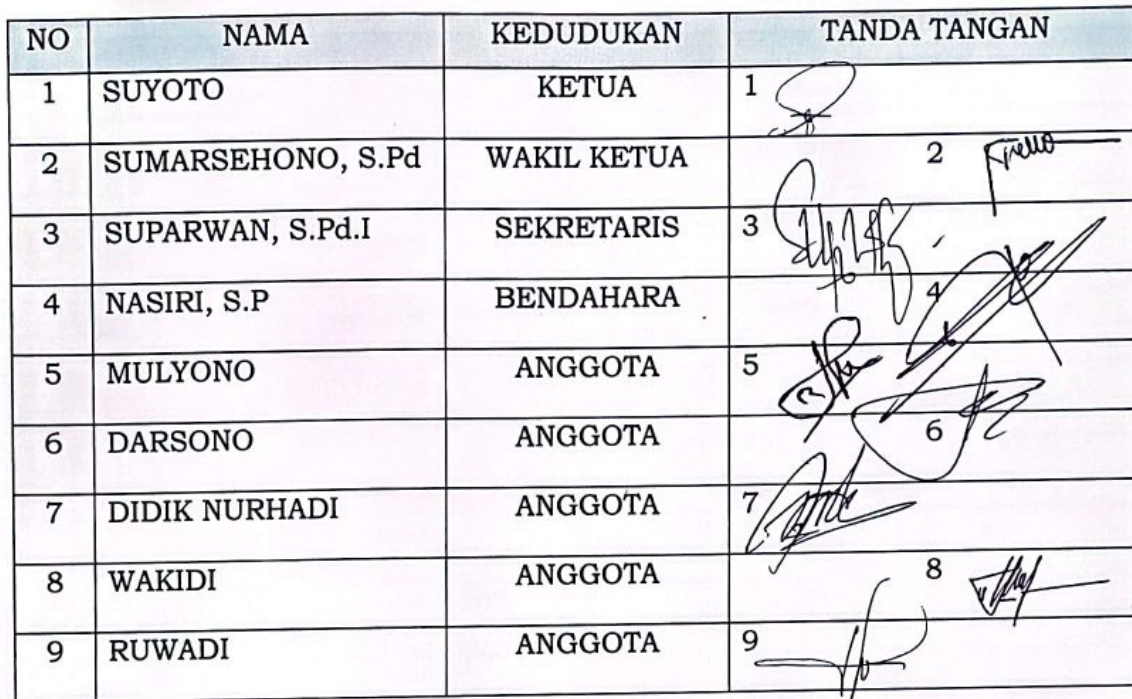 NO NAMA KEDUDUKAN TANDA TANGAN
1 SUYOTO KETUA 1
2 SUMARSEHONO, S.Pd WAKIL KETUA 2
3 SUPARWAN, S.Pd.I SEKRETARIS 3
4 NASIRI, S.P BENDAHARA 4
5 MULYONO ANGGOTA 5
6 DARSONO ANGGOTA 6
7 DIDIK NURHADI ANGGOTA 7
8 WAKIDI ANGGOTA 8
9 RUWADI ANGGOTA 9